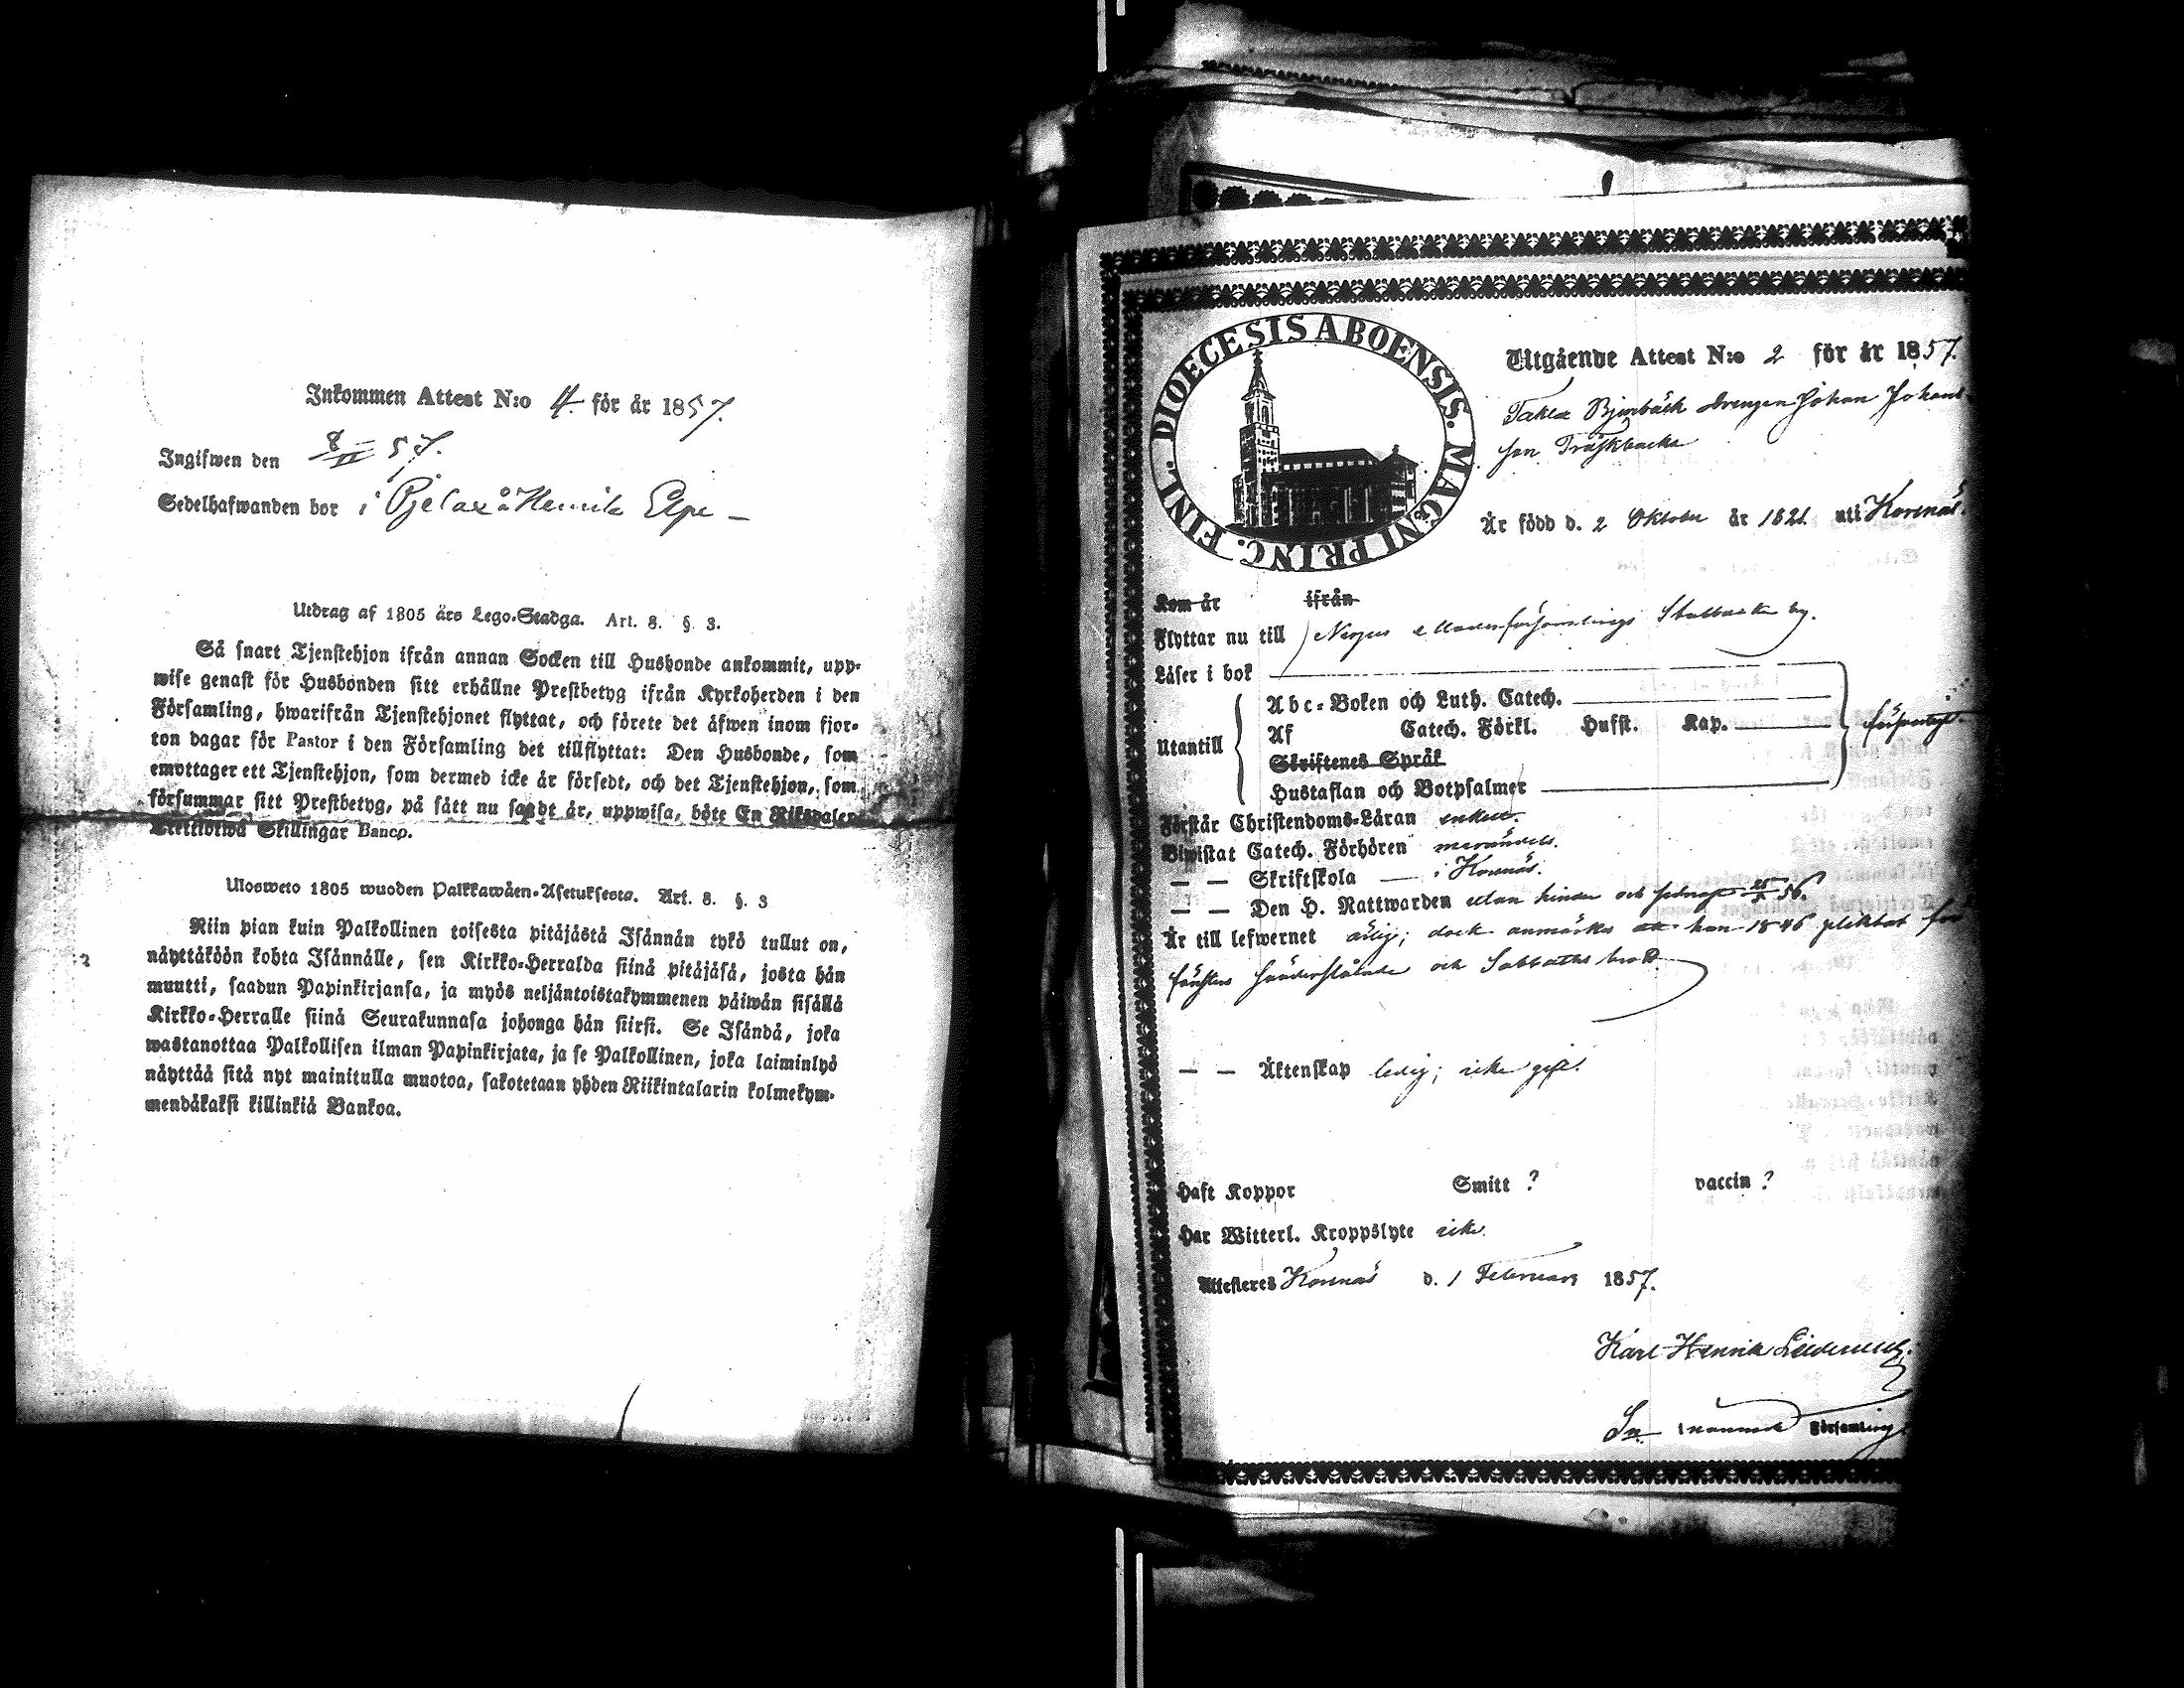 Inkommen Attest N:o 4 för år 1857.
Ingifwen den 8/II 57.
Sedelhafwanden bor i Pjelax å Henrik
Utdrag af 1805 års Lego-Stadga. Art. 8. § 3.
Så snart Tjenstehjon ifrån annan Socken till Husbonde ankommit, upp-
wise genast för Husbonden sitt erhållne Prestbetyg ifrån Kyrkoherden i den
Församling, hwarifrån Tjenstehjonet flyttat, och förete det äfwen inom fjor-
ton dagar för Pastor i den Församling det tillflyttat: Den Husbonde, som
emottager ett Tjenstehjon, som dermed icke är försedt, och det Tjenstehjon, som
försummar sitt Prestbetyg, på sätt nu sagdt är, uppwisa, böte En Riksdaler
Trettiotwå Skillingar Banco.
Ulosweto 1805 wuoden Palkkawäen-Asetuksesta. Art. 8. §. 3
Niin pian kuin Palkollinen toisesta pitäjästä Isännän tykö tullut on,
näyttäköön kohta Isännälle, sen Kirkko-Herralda siinä pitäjäsä, josta hän
muutti, saadun Papinkirjansa, ja myös neljäntoistakymmenen päiwän sisällä
Kirkko-Herralle siinä Seurakunnasa johonga hän siirsi. Se Isändä, joka
wastanottaa Palkollisen ilman Papinkirjata, ja se Palkollinen, joka laiminlyö
näyttää sitä nyt mainitulla muotoa, sakotetaan yhden Riikintalarin kolmekym-
mendäkaksi killinkiä Bankoa.
DIOECESIS ABOENSIS. MAGNI PRINC. FINL.
Utgående Attest N:o 2 för år 1857.
Drengen Johan Johans
son Träskbacka
Är född d. 2 Oktober år 1821. uti Korsnäs.
Kom år ifrån
Flyttar nu till Nerpes Moderförsamlings by.
Läser i bok
Abc-Boken och Luth. Catech.
Utantill Af Catech. Förkl. Hufst. Kap. försvarligt.
Skriftenes Språk
Hustaflan och Botpsalmer
Förstår Christendoms-Läran enkelt.
Biwistat Catech. Förhören
— — Skriftskola — i Korsnäs.
— — Den H. Nattwarden utan hinder och sednast 56.
Är till lefwernet ärlig; dock anmärkes att han 1846 pliktat för
fönsters sönderslående och Sabbathsbrott.
— — Äktenskap ledig; icke gift.
Haft Koppor Smitt ? vaccin ?
Har Witterl. Kroppslyte icke
Attesteres Korsnäs d. 1 Februari 1857.
Karl Henrik
Församling